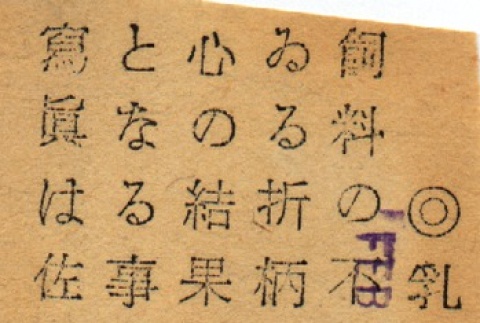 ◎乳
飼料の不
ゐる折柄
心の結果
となる事
寫眞は佐
FEB